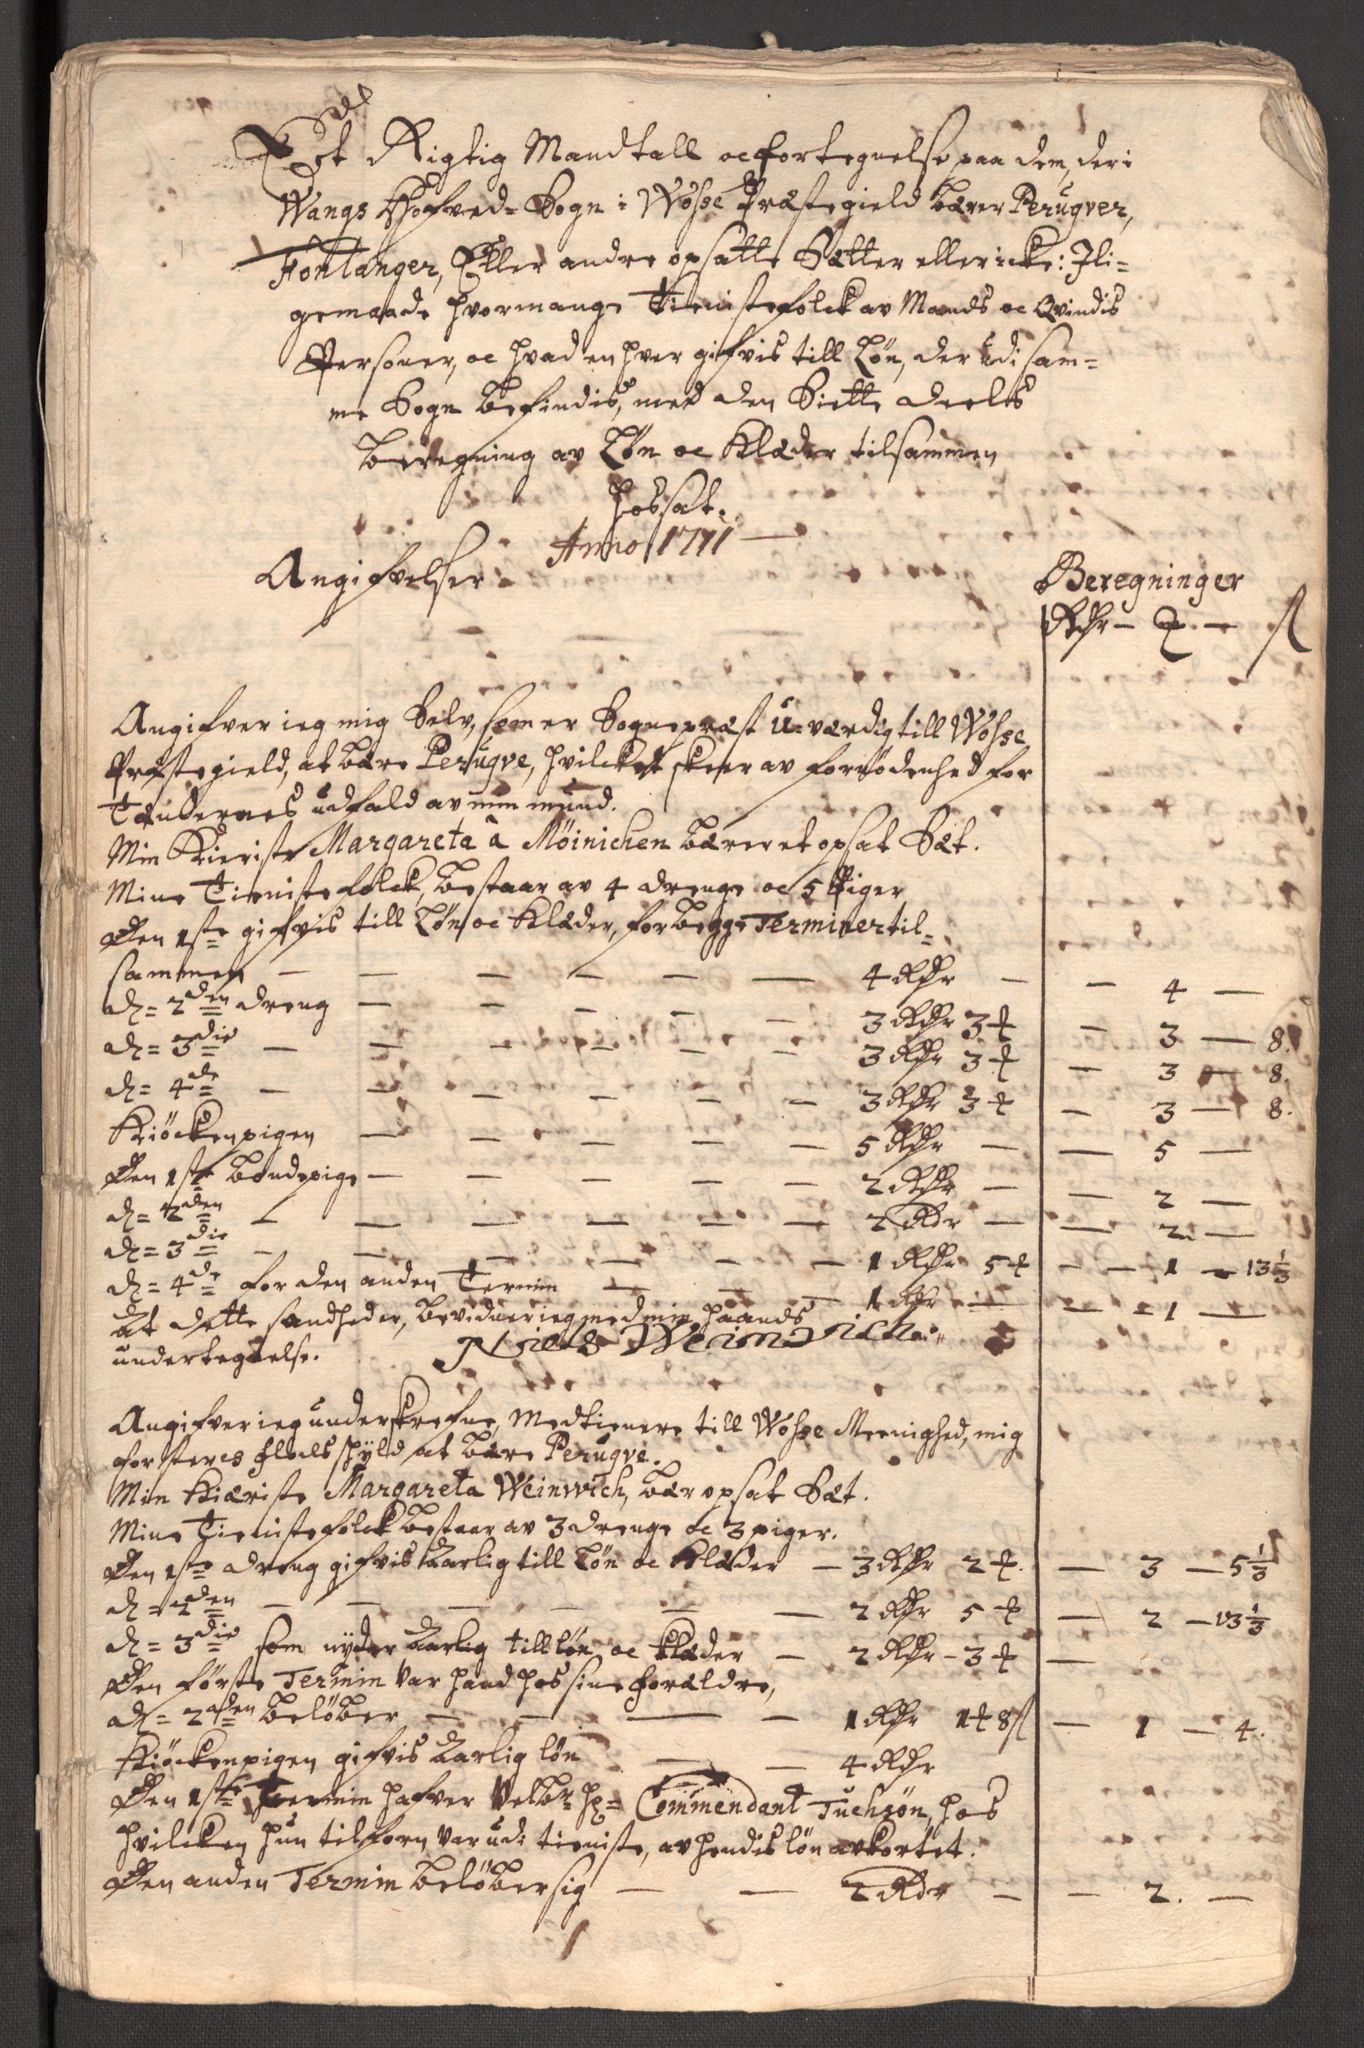 Et Rigtig Mandtall oc fortegnelse paa dem, der i
Wangs Hofved-Sogn i Wosse Præstegield bærer Perugver,
Fontanger, Eller andre opsatte Sætter eller icke: Ili-
gemaade hvormange Tienistefolck av Mands oc Qvindis
Personer, oc hvad en hver gifvis till Løn, der udi sam-
me Sogn befindis, med den Siette deels
beregning av Løn oc Klæder tilsammen
hossat.
Anno 1711
Angifvelser
Beregninger
Rdr — — ß
Angifver ieg mig Selv, som er Sognepræst u-værdig till Wosse
Præstegield, at bære Perugve, hvilcket skeer av fornødenhed for
Tændernes udfald av min mund.
Min Kieriste Margareta â Møinichen bærer et opsat Sæt.
Mine Tieniste folck, bestaar av 4 drenge oc 5 Piger
Den 1ste gifvis till Løn oc Klæder, for begge Terminer til-
sammen — 4 Rdr — 4 —
d= 2den dreng — 3 Rdr 3 — 3 — 8.
d= 3die — 3 Rdr 3 — 3 — 8.
d= 4de — 3 Rdr 3 — 3 — 8.
Kiøckenpigen — 5 Rdr — 5 —
Den 1ste bondepige — 2 Rdr — 2 —
d= 2den — 2 Rdr — 2. —
d= 3die — 1 Rdr 5 — 1 — 13 1/3
d= 4de for den anden Termin — 1 Rdr — 1 —
At dette sandhed er, bevidner ieg med min haands
undertegnelse. Niels Weinwich
Angifver ieg underskrefne, Medtienere till Wosse Meenighed, mig
for skyld at bære Perugve.
Min Kiæriste Margareta Weinwich, bær opsat Sæt.
Mine Tienistefolck bestaar av 3 drenge oc 3 piger.
Den 1ste dreng gifvis Aarlig till Løn oc Klæder — 3 Rdr 2 — 3 — 5 1/3
d= 2den — 2 Rdr 5 — 2 — 13 1/3
d= 3die som nyder Aarlig till løn oc klæder — 2 Rdr - 3 —
Den første Termin var hand hos sine forældre,
d= 2den beløber — 1 Rdr 1 8 ß — 1 — 4.
Kiøckenpigen gifvis Aarlig løn — 4 Rdr
Den 1ste Termin hafver Velbr Hr= Commendant Tuchsøn, hos
hvilcken hun tilforn var udi tieniste, av hendis løn avkortet.
Den anden Termin beløber sig — 2 Rdr — 2. —